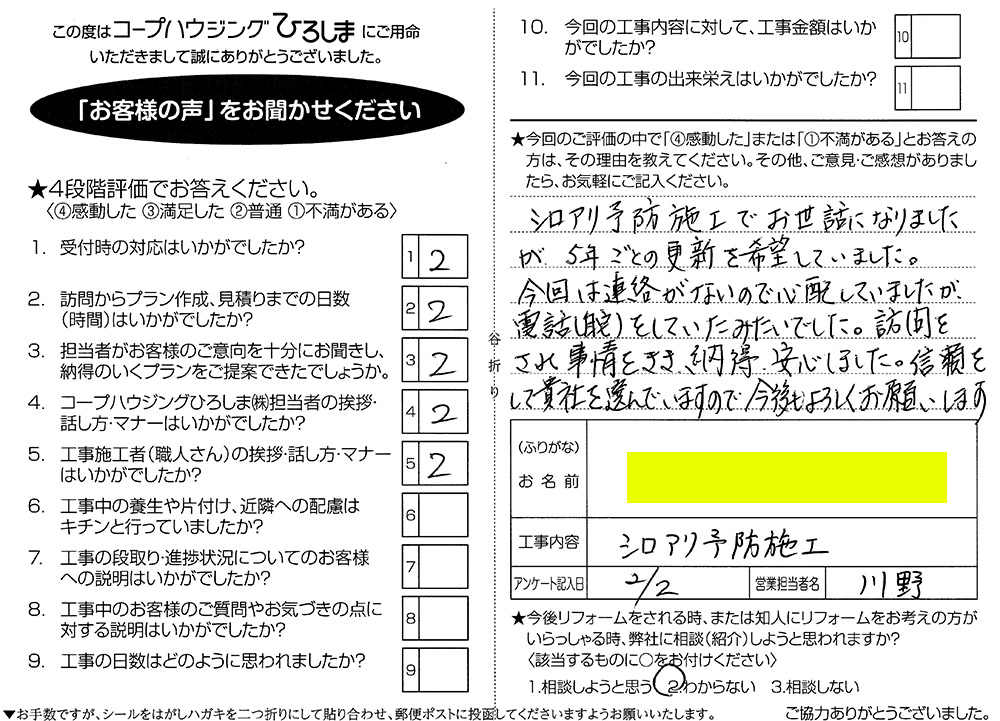 この度はコープハウジングひろしまにご用命
いただきまして誠にありがとうございました。
「お客様の声」をお聞かせください
★4段階評価でお答えください。
〈④感動した ③満足した ②普通 ①不満がある〉
1. 受付時の対応はいかがでしたか?
1 2
2. 訪問からプラン作成、見積りまでの日数
(時間)はいかがでしたか?
2 2
3. 担当者がお客様のご意向を十分にお聞きし、
納得のいくプランをご提案できたでしょうか。
3 2
4. コープハウジングひろしま㈱担当者の挨拶・
話し方・マナーはいかがでしたか?
4 2
5. 工事施工者(職人さん)の挨拶・話し方・マナー
はいかがでしたか?
5 2
6. 工事中の養生や片付け、近隣への配慮は
キチンと行っていましたか?
6
7. 工事の段取り・進捗状況についてのお客様
への説明はいかがでしたか?
7
8. 工事中のお客様のご質問やお気づきの点に
対する説明はいかがでしたか?
8
9. 工事の日数はどのように思われましたか?
9
▼お手数ですが、シールをはがしハガキを二つ折りにして貼り合わせ、郵便ポストに投函してくださいますようお願いいたします。
谷折り
10. 今回の工事内容に対して、工事金額はいか
がでしたか?
10
11. 今回の工事の出来栄えはいかがでしたか?
11
★今回のご評価の中で「④感動した」または「①不満がある」とお答えの
方は、その理由を教えてください。その他、ご意見・ご感想がありまし
たら、お気軽にご記入ください。
シロアリ予防施工でお世話になりました
が 5年ごとの更新を希望していました。
今回は連絡がないので心配していましたが、
電話(  )をしていたみたいでした。訪問を
され事情をきき、納得、安心しました。信頼を
して貴社を選んでいますので今後もよろしくお願いします
(ふりがな)
お名前
工事内容 シロアリ予防施工
アンケート記入日 2/2 営業担当者名 川野
★今後リフォームをされる時、または知人にリフォームをお考えの方が
いらっしゃる時、弊社に相談(紹介)しようと思われますか?
〈該当するものに○をお付けください〉
1.相談しようと思う 2.わからない 3.相談しない
ご協力ありがとうございました。